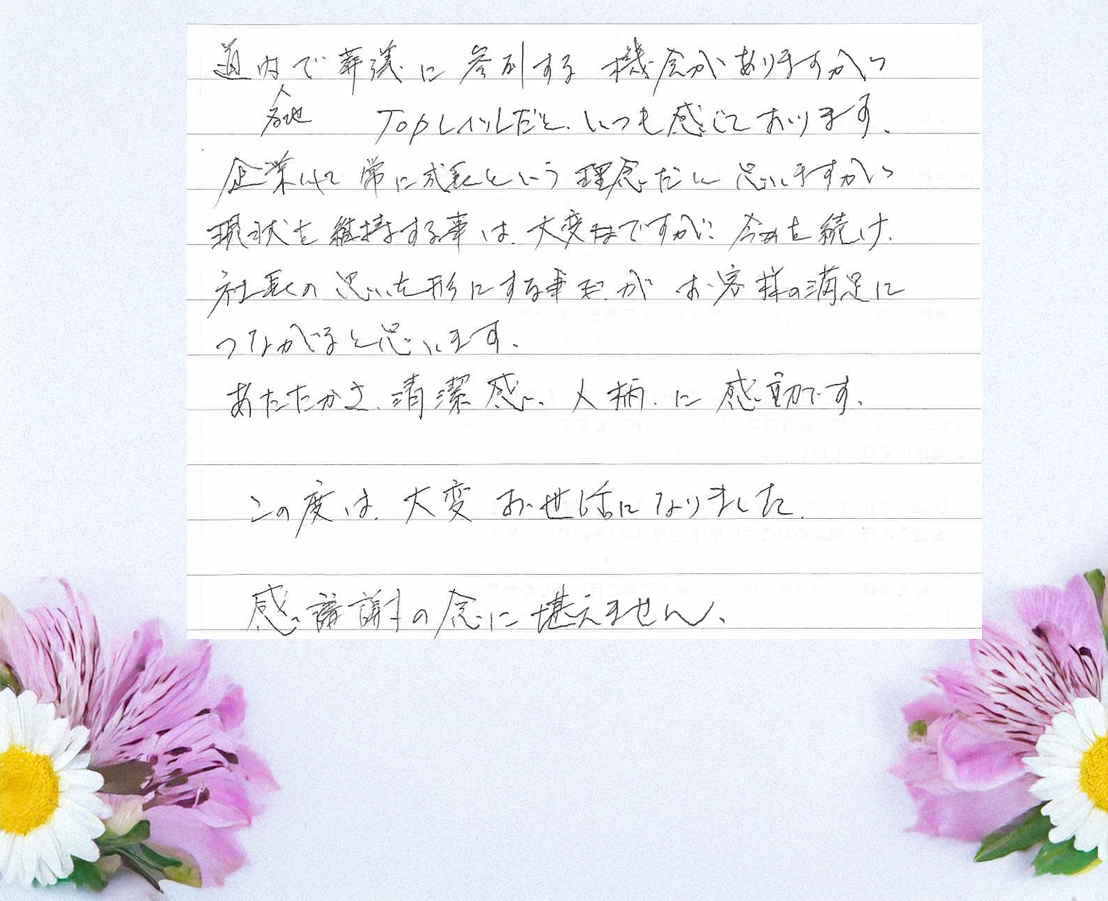 道内各地で葬儀に参列する機会がありますが、
Topレベルだと、いつも感じております。
企業は常に成長という理念だと思いますが、
現状を維持する事は、大変ですが、今を続け、
社長の思いを形にする事が お客様の満足に
つながると思います。
あたたかさ、清潔感、人柄、に感動です。
この度は、大変お世話になりました。
感謝の念に堪えません。